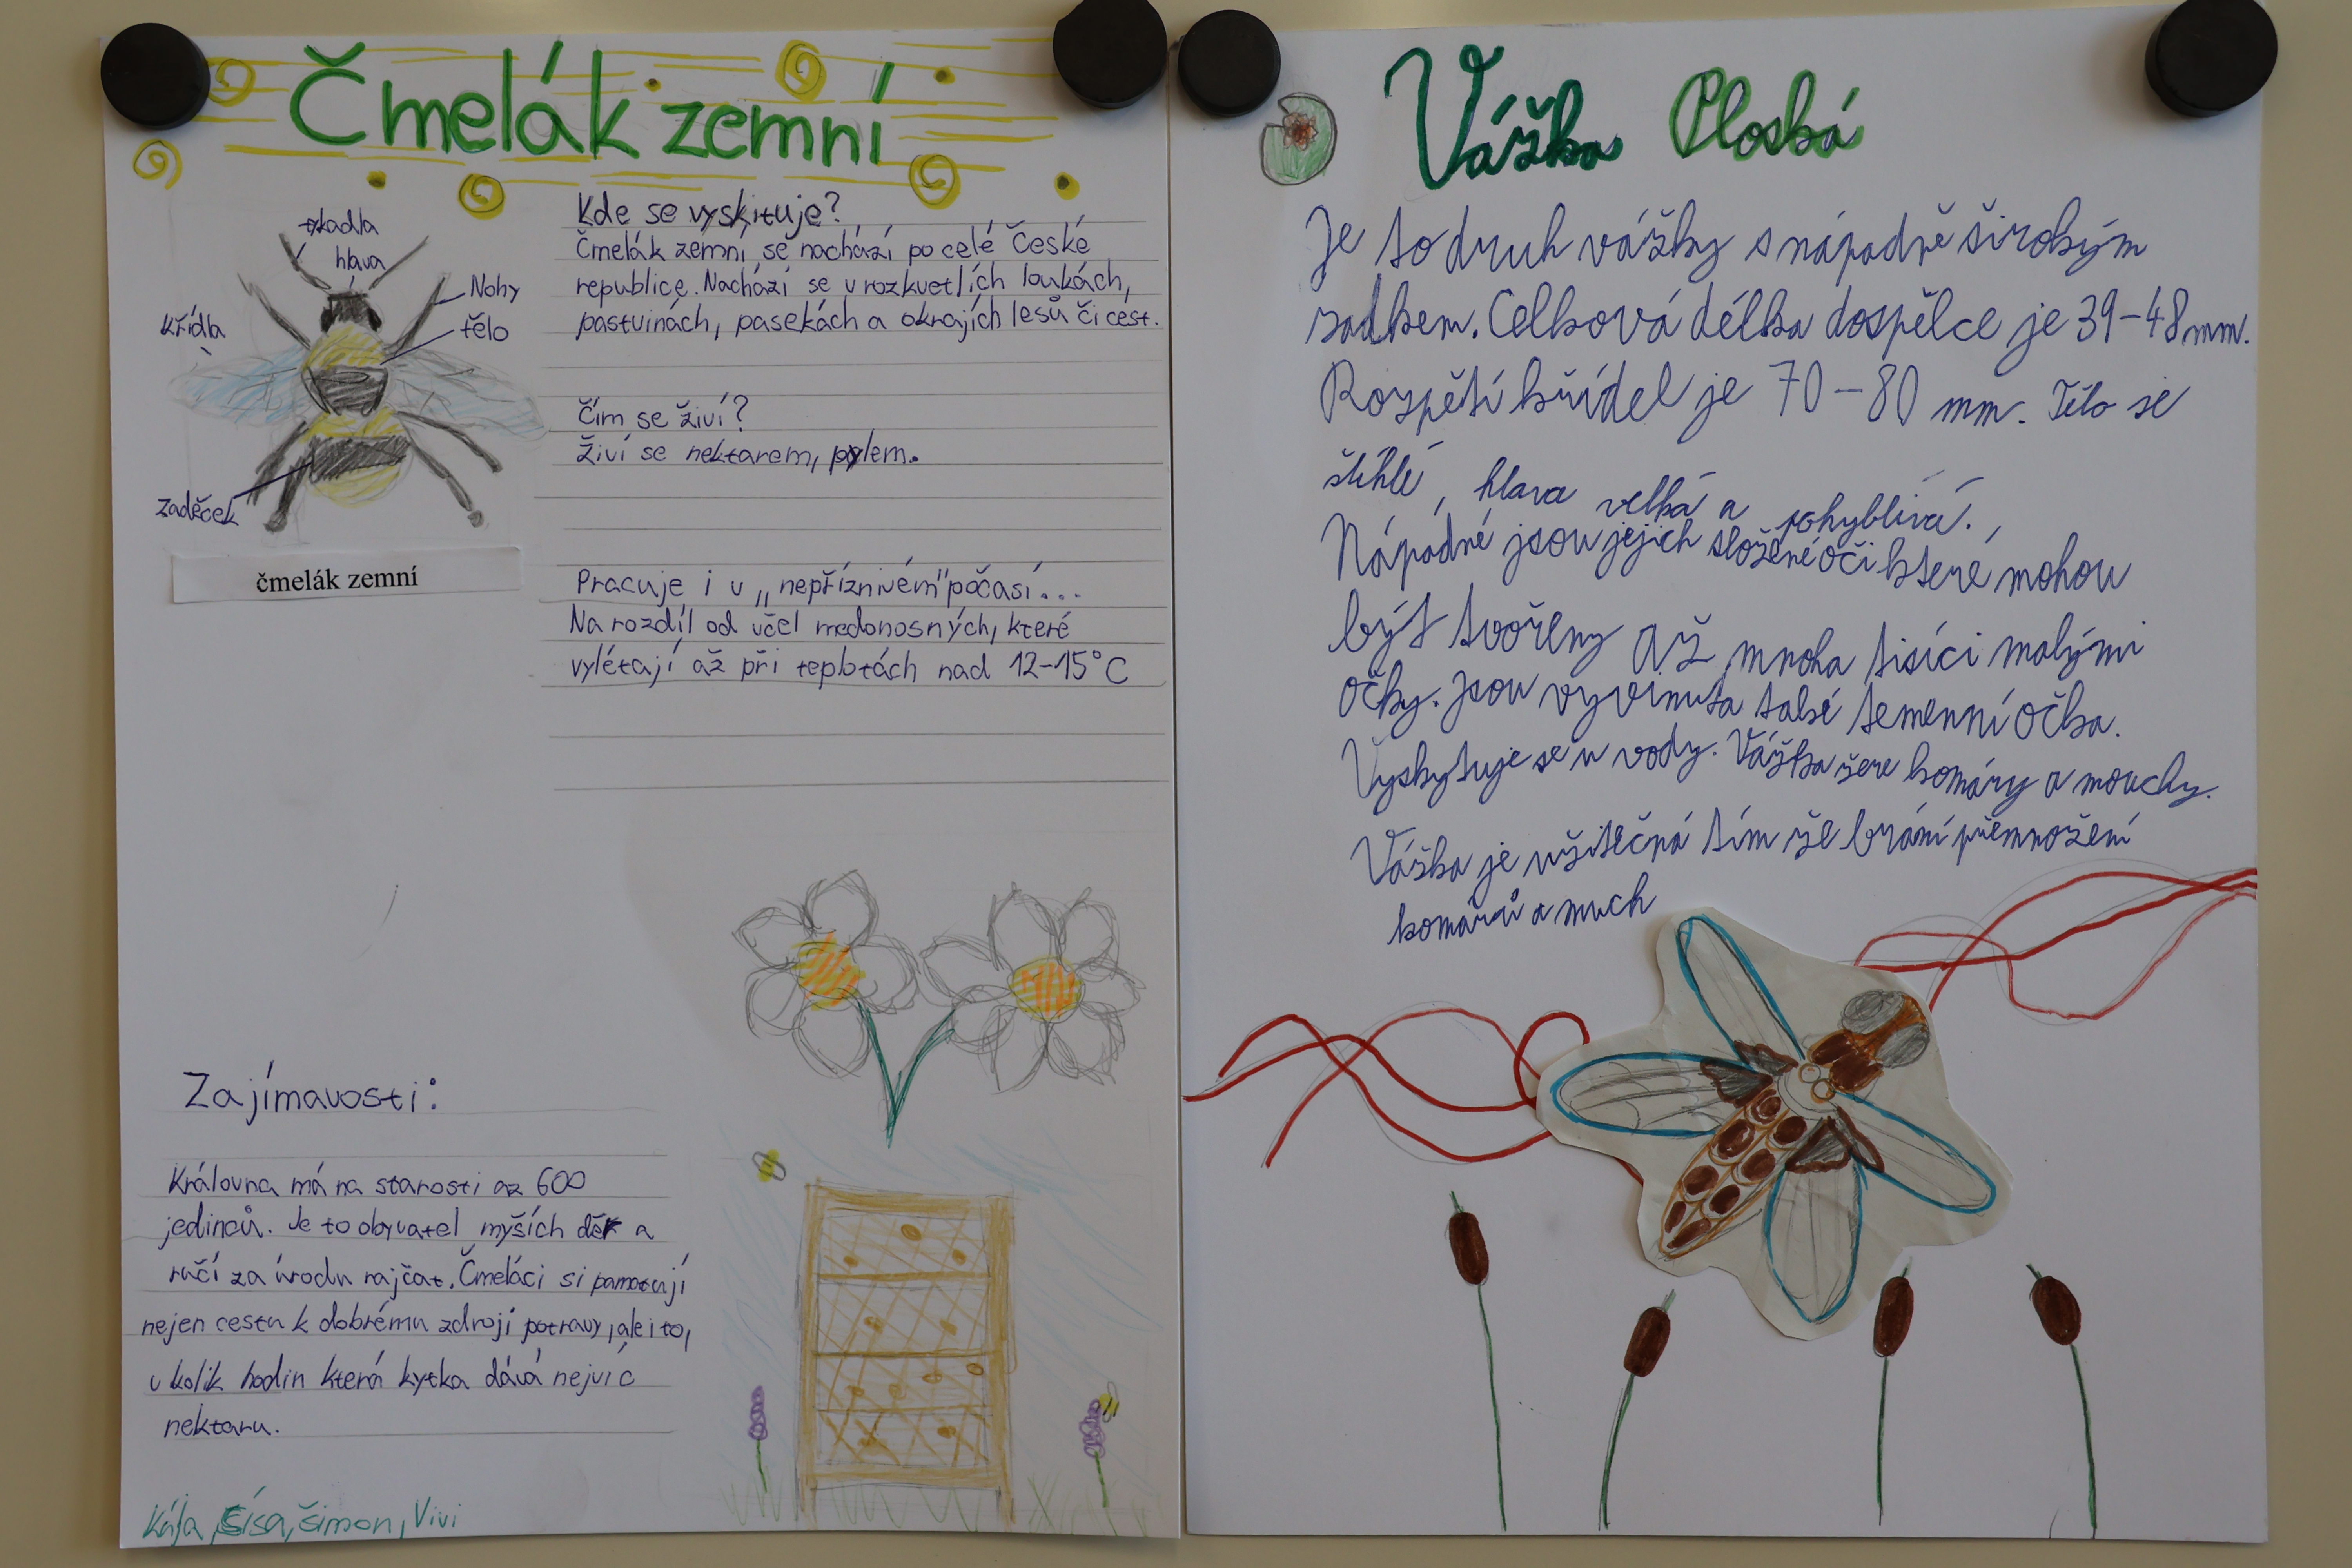 Čmelák zemní
tykadla
hlava
Nohy
křídla
tělo
zadeček
čmelák zemní
Kde se vyskituje?
Čmelák zemní se nachází po celé České
republice. Nachází se v rozkvetlích loukách,
pastvinách, pasekách a okrajích lesů či cest.
Čím se živí?
Živí se nektarem, pylem.
Pracuje i v „nepříznivém" počasí...
Na rozdíl od včel medonosných, které
vylétají až při teplotách nad 12-15°C
Zajímavosti:
Královna má na starosti az 600
jedinců. Je to obyvatel myších děr a
ručí za úrodu rajčat. Čmeláci si pamatují
nejen cestu k dobrému zdroji potravy, ale i to,
v kolik hodin která kytka dává nejvíc
nektaru.
Kája, Sísa, Šimon, Vivi
Vážka Ploská
Je to druh vážky s nápadně širokým
zadkem. Celková délka dospělce je 39-48 mm.
Rozpětí křídel je 70-80 mm. Tělo se
štíhlé, hlava velká a pohyblivá.
Nápadné jsou jejich složené oči které mohou
být tvořeny až mnoha tisíci malými
očky. Jsou vyvinuta také temenní očka.
Vyskytuje se u vody. Vážka žere komáry a mouchy.
Vážka je užitečná tím že brání přemnožení
komárů a much